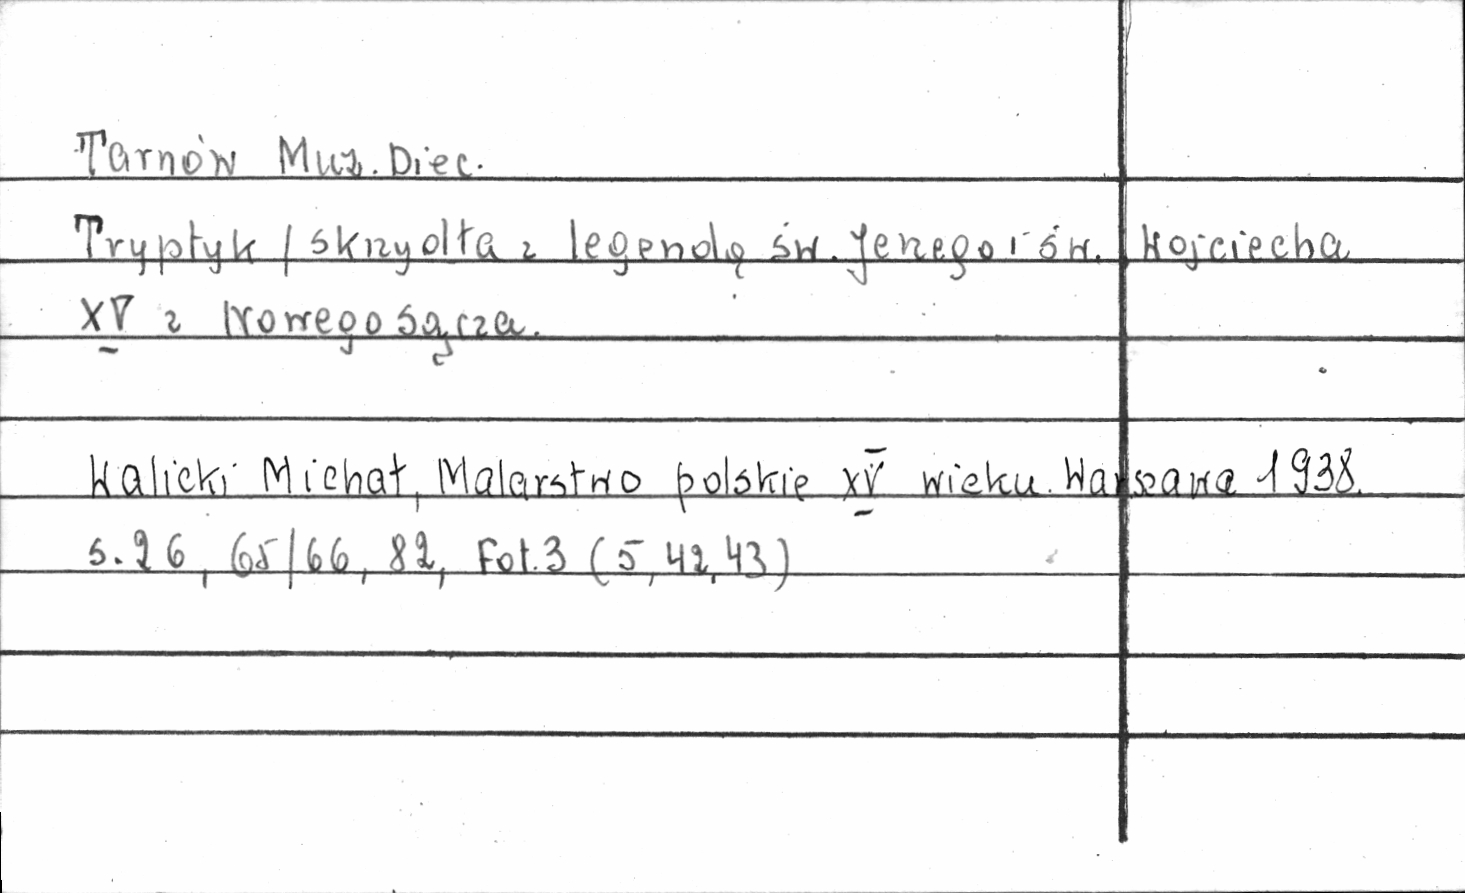 Tarnów Muz. Diec.
Tryptyk / skrzydła z legendą św. Jerzego i św. Wojciecha
XV z Nowego Sącza.
Walicki Michał, Malarstwo polskie XV wieku. Warszawa 1938.
s. 26, 65/66, 82, Fot. 3 (5, 42, 43)